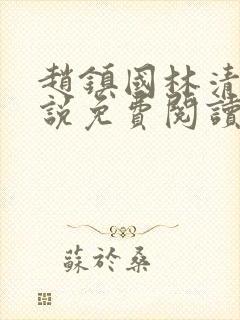 趙鎮國林清
說免費閱讀
蘇於桑